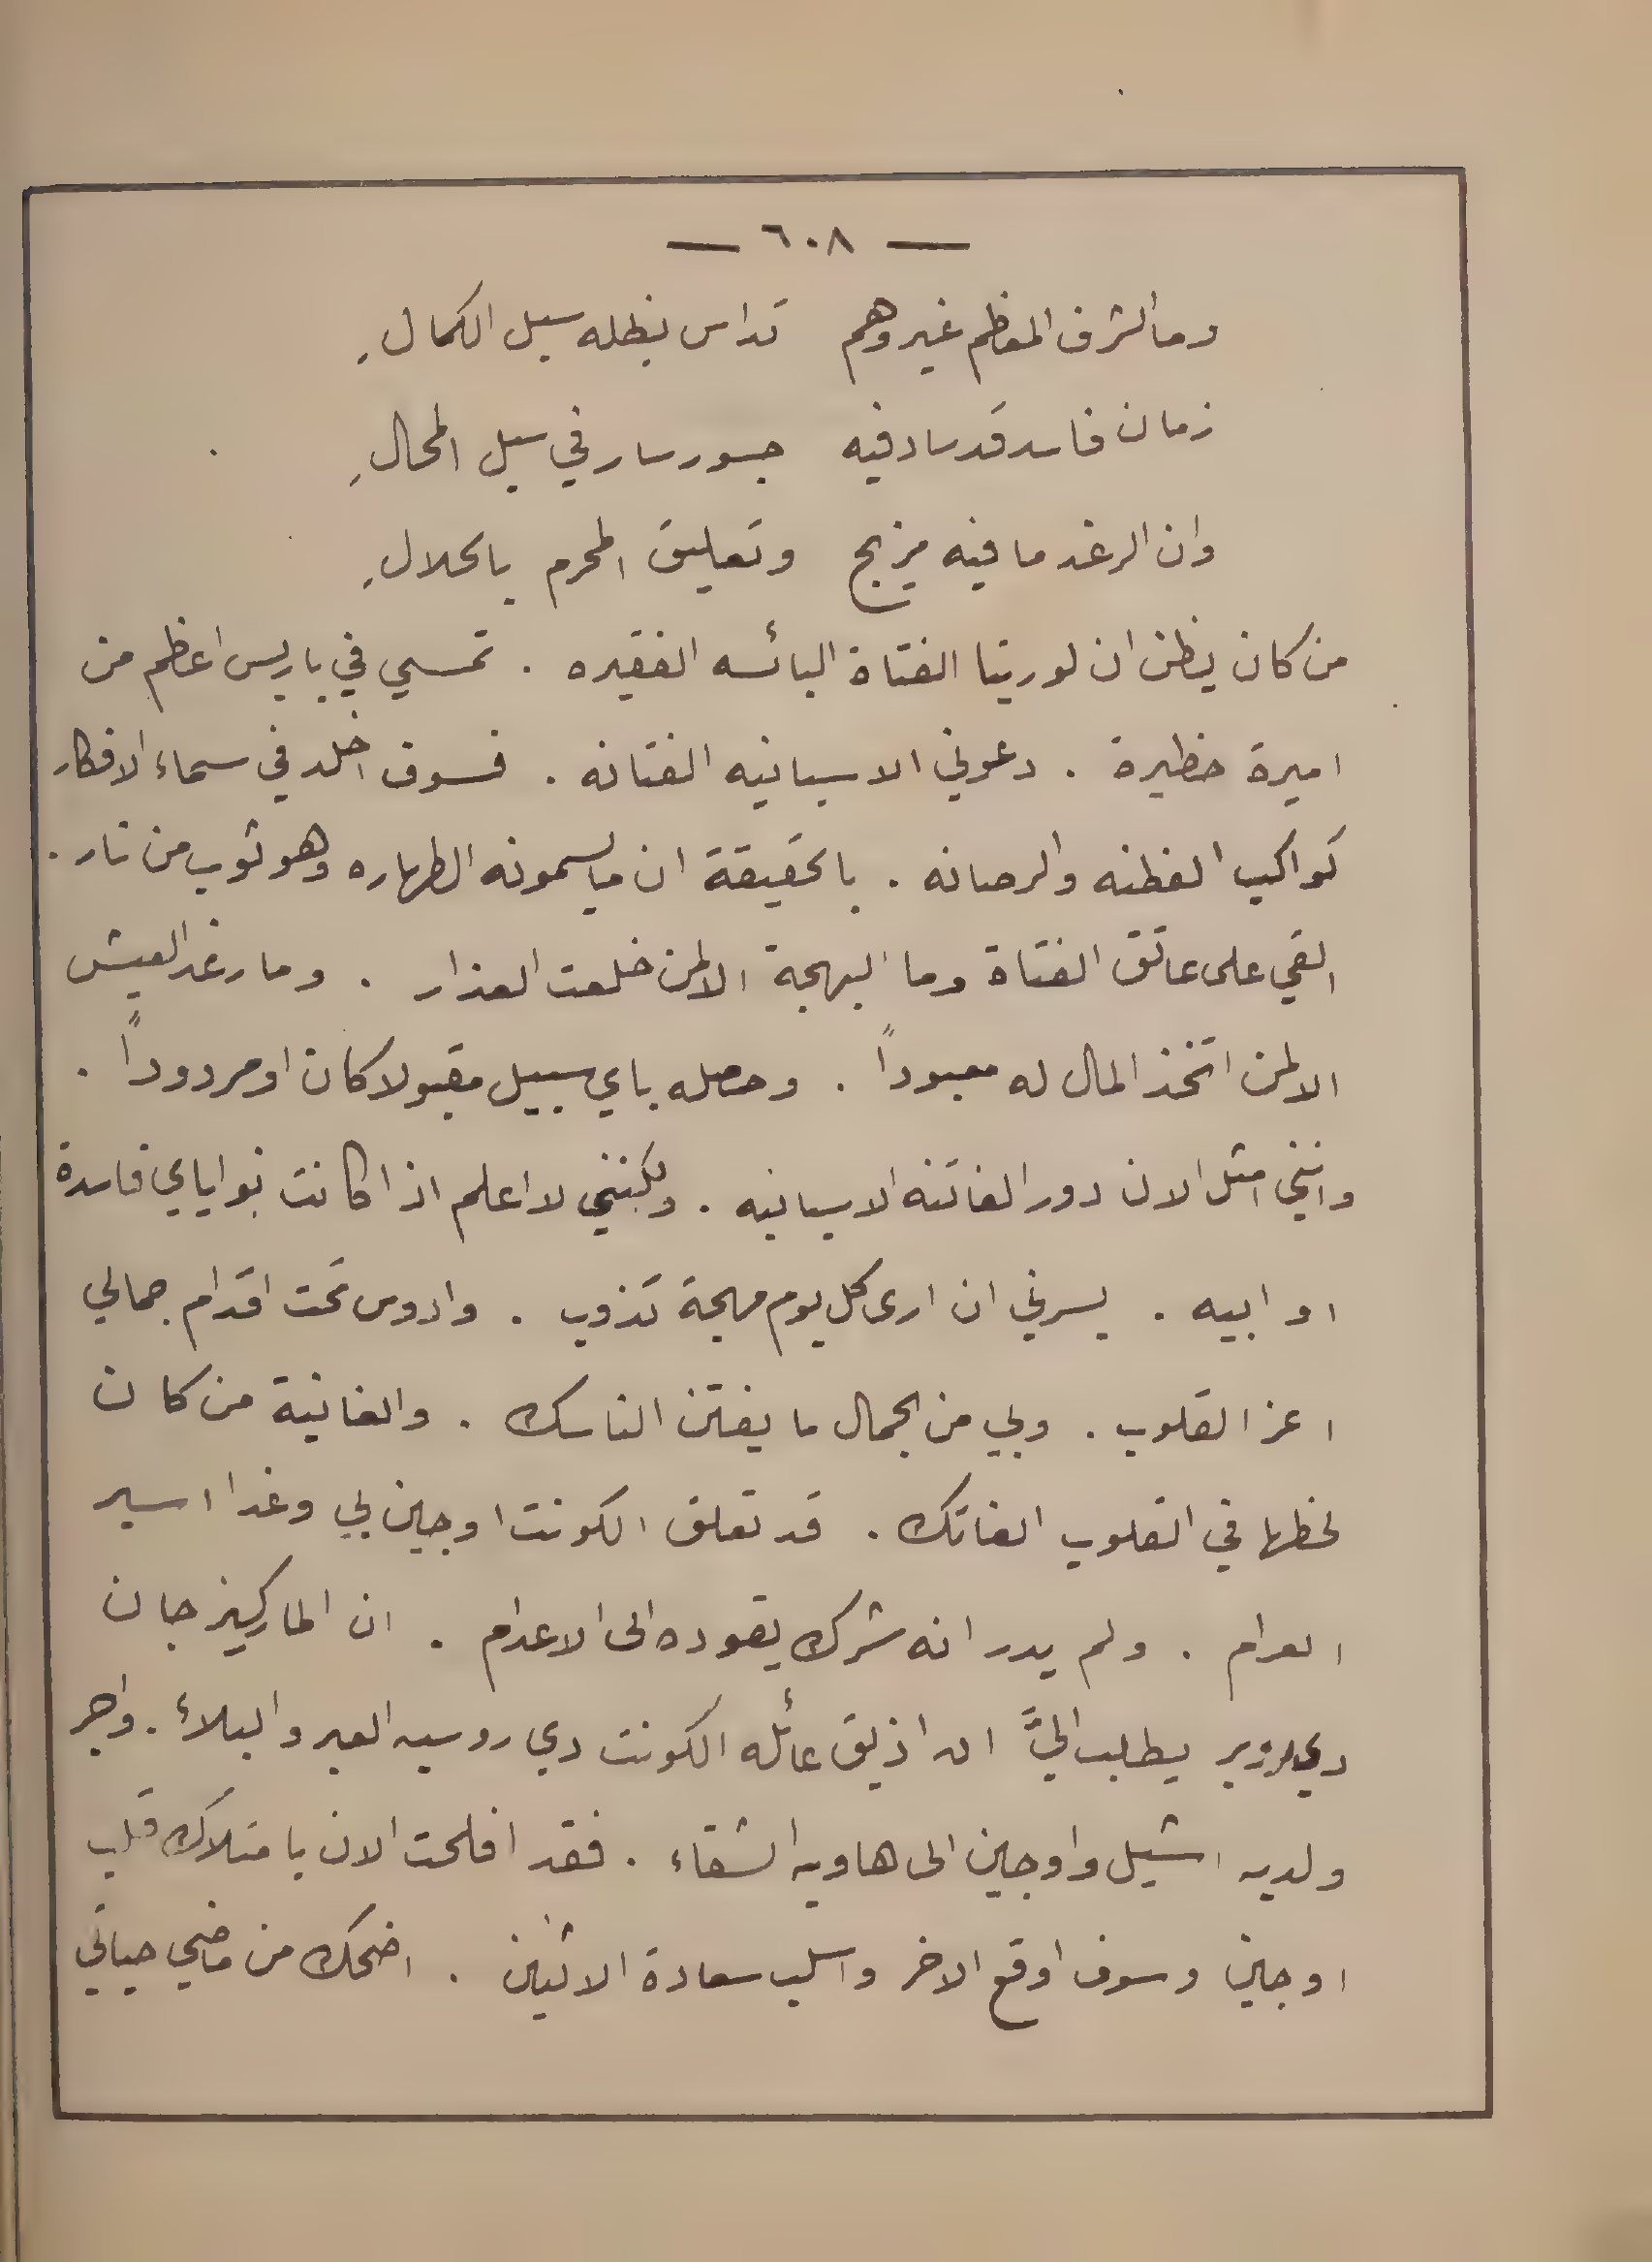 — ٦٠٨ —
وما الشرف المعظم غير وهم تداس بظله سبل الكمالِ
زمان فاسد قد ساد فيه جسور سار في سبل المحالِ
وان الرغد ما فيه مزيج وتعليق المحرم بالحلالِ
من كان يظن ان لوريتا الفتاة البائسه الفقيره . تمسي في باريس اعظم من
اميرة خطيرة . دعوني الاسبانيه الفتانه . فسوف اخلد في سماء الافكار
كواكب الفطنه والرصانه . بالحقيقة ان ما يسمونه الطهاره وهو ثوب من نار .
القي على عاتق الفتاة وما البهجة الا لمن خلعت العذار . وما رغد العيش
الا لمن اتخذ المال له معبوداً . وحصله باي سبيل مقبولا كان او مردوداً .
وانني امثل الان دور الفاتنه الاسبانيه . ولكنني لا اعلم اذا كانت نواياي فاسدة
او ابيه . يسرني ان ارى كل يوم مهجة تذوب . وادوس تحت اقدام جمالي
اعز القلوب . وبي من الجمال ما يفتن الناسك . والغانية من كان
لحظها في القلوب الفاتك . قد تعلق الكونت اوجين بي وغدا اسير
الغرام . ولم يدر انه شرك يقوده الى الاعدام . ان الماركيز جان
دي يطلب اليَّ ان اذيق عائله الكونت دي روسيه العبر والبلاء . واجر
ولديه اشيل واوجين الى هاويه الشقاء . فقد افلحت الان بامتلاك قلب
اوجين وسوف اوقع الاخر واسلب سعادة الاثنين . اضحك من ماضي حياتي